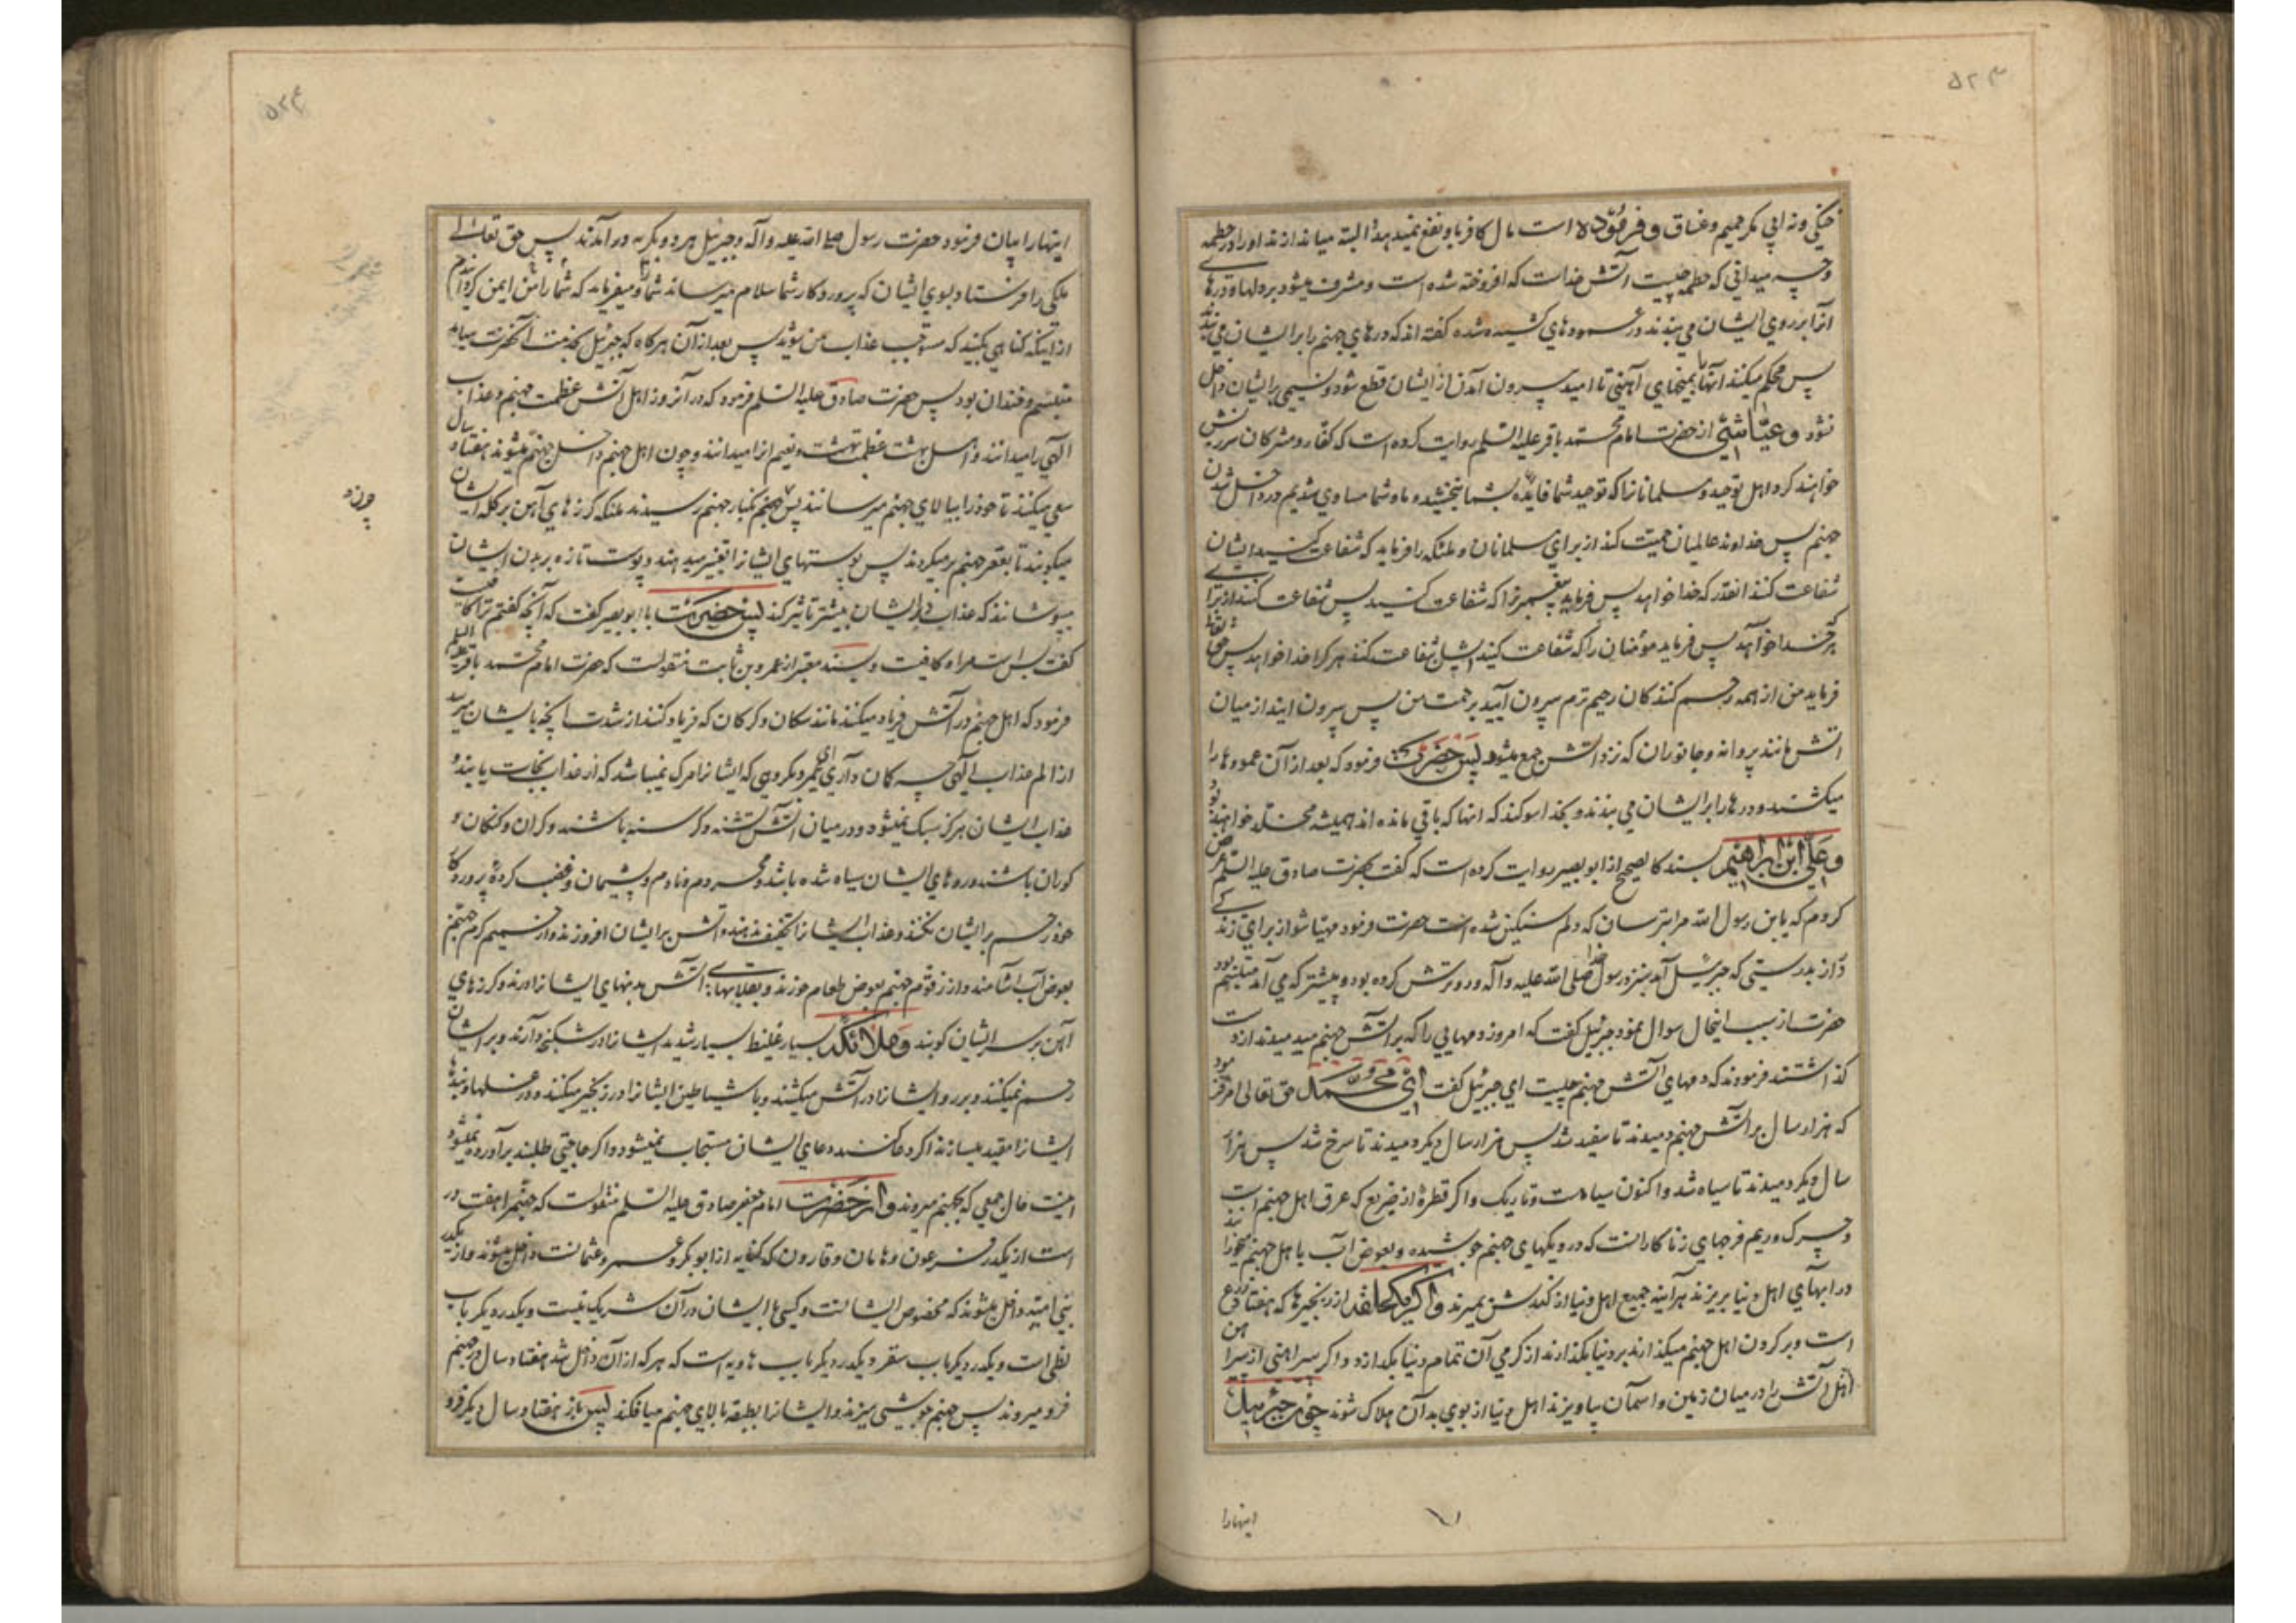 ۵۲۳
خنکی ونه ابی مکر حمیم وغساق وفرموده است مال کافر باو نفع نمیدهد البته میاندازند اورا در حطمه
وچه میدانی که حطمه چیست آتش خداست که افروخته شده است ومشرف میشود بر دلها ودرهای
انرا بر روی ایشان می بندند در عمودهای کشیده شده گفته اند که درهای جهنم را بر ایشان می بندند
پس محکم میکنند آنها را بمیخهای آهنی تا امید بیرون آمدن از ایشان قطع شود ونسیمی بر ایشان داخل
نشود وعیاشی از حضرت امام محمد باقر علیه السلم روایت کرده است که کفار ومشرکان سرزنش
خواهند کرد اهل توحید ومسلمانانرا که توحید شما فایده بشما نبخشید وما وشما مساوی شدیم در داخل شدن
جهنم پس خداوند عالمیان حمیت کند از برای مسلمانان وملئکه را فرماید که شفاعت کنید ایشان
شفاعت کنند انقدر که خدا خواهد پس فرماید پیغمبرانرا که شفاعت کنید پس شفاعت کنند از برای
هر که خدا خواهد پس فرماید مؤمنان را که شفاعت کنید ایشان شفاعت کنند هر کرا خدا خواهد پس حقتعالی
فرماید من از همه رحم کنندگان رحیم ترم بیرون آیید برحمت من پس بیرون ایند از میان
اتش مانند پروانه وجانوران که نزد اتش جمع میشود پس حضرت فرمود که بعد از آن عمودها را
میکشند ودرها را بر ایشان می بندند وبخدا سوکند که انها که باقی مانده اند همیشه مخلد خواهند بود
وعلی ابن ابراهیم بسند کالصحیح از ابو بصیر روایت کرده است که گفت بحضرت صادق علیه السلم عرض
کردم که یابن رسول الله مرا بترسان که دلم سنکین شده است حضرت فرمود مهیا شو از برای زندکی
دراز بدرستی که جبرئیل آمد بنزد رسول خدا صلی الله علیه وآله ورو ترش کرده بود وپیشتر که می آمد متبسم بود
حضرت از سبب اینحال سوال نمود جبرئیل گفت که امروز دمهایی را که بر آتش جهنم میدمیدند از دست
گذاشتند فرمودند که دمهای آتش جهنم چیست ای جبرئیل گفت ای محمد حق تعالی امر فرمود
که هزار سال بر آتش جهنم دمیدند تا سفید شد پس هزار سال دیکر دمیدند تا سرخ شد پس هزار
سال دیکر دمیدند تا سیاه شد واکنون سیاه است وتاریک واکر قطرۀ از ضریع که عرق اهل جهنم است
وچرک وریم فرجهای زناکارانست که در دیکهای جهنم جوشیده وبعوض اب باهل جهنم میخورانند
در ابهای اهل دنیا بریزند هرآینه جمیع اهل دنیا از کندش بمیرند واکر یکحلقه از زنجیرها که هفتاد ذرع
است وبر کردن اهل جهنم میکذارند بر دنیا بکذارند از کرمی آن تمام دنیا بکدازد واکر پیراهنی از پیراهن
اهل آتش را در میان زمین واسمان بیاویزند اهل دنیا از بوی بد آن هلاک شوند چون جبرئیل
اینهارا
۵۲۴
اینهارا بیان فرمود حضرت رسول صلی الله علیه وآله وجبرئیل هر دو بکریه درآمدند پس حق تعالی
ملکی را فرستاد بسوی ایشان که پروردکار شما سلام میرساند شما را ومیفرماید که شما را من ایمن کردانیدم
از اینکه گناهی بکنید که مستوجب عذاب من شوید پس بعد از آن هرکاه که جبرئیل بخدمت آنحضرت میامد
متبسم وخندان بود پس حضرت صادق علیه السلم فرمود که در آنروز اهل آتش عظمت جهنم وعذاب
الهی را میدانند واهل بهشت عظمت بهشت ونعیم انرا میدانند وچون اهل جهنم داخل جهنم میشوند هفتاد سال
سعی میکنند تا خود را ببالای جهنم میرسانند پس چون بکنار جهنم رسیدند ملئکه کرزهای آهن بر کله ایشان
میکوبند تا بقعر جهنم برمیکردند پس پوستهای ایشانرا تغییر میدهند وپوست تازه بر بدن ایشان
میپوشانند که عذاب در ایشان بیشتر تاثیر کند پس حضرت با ابو بصیر گفت که آنچه گفتم ترا کافیست
گفت بس است مرا وکافیست وبسند معتبر از عمرو بن ثابت منقولست که حضرت امام محمد باقر علیه السلم
فرمود که اهل جهنم در آتش فریاد میکنند مانند سکان وکرکان که فریاد کنند از شدت آنچه بایشان میرسد
از الم عذاب الهی چه کمان داری ای عمرو بکروهی که ایشانرا مرک نمیباشد که از عذاب نجات یابند و
عذاب ایشان هرکز سبک نمیشود ودر میان آتش تشنه وکرسنه باشند وکران وکنکان و
کوران باشند وروهای ایشان سیاه شده باشد ومحروم ونادم وپشیمان وغضب کردۀ پروردکار
خود رحم بر ایشان نکنند وعذاب ایشانرا تخفیف ندهند وآتش بر ایشان افروزند واز حمیم کرم جهنم
بعوض آب آشامند واز زقوم جهنم بعوض طعام خورند وبقلابهای آتش بدنهای ایشانرا درند وکرزهای
آهن بر سر ایشان کوبند وملائکه بسیار غلیظ بسیار شدید ایشانرا در شکنجه دارند وبر ایشان
رحم نمیکنند وبر رو ایشانرا در آتش میکشند وبا شیاطین ایشانرا در زنجیر میکنند ودر غلها وبندها
ایشانرا مقید میسازند اکر دعا کنند دعای ایشان مستجاب نمیشود واکر حاجتی طلبند برآورده نمیشود
اینست حال جمعی که بجهنم میروند واز حضرت امام جعفر صادق علیه السلم منقولست که جهنم را هفت در
است از یکدر فرعون وهامان وقارون که کنایه از ابو بکر وعمر وعثمانست داخل میشوند واز یکدر
بنی امیه داخل میشوند که مخصوص ایشانست وکسی با ایشان در آن شریک نیست ویکدر دیکر باب
لظی است ویکدر دیکر باب سقر ویکدر دیکر باب هاویه است که هر که از آن داخل شد هفتاد سال در جهنم
فرو میرود پس جهنم جوشی میزند وایشانرا بطبقه بالای جهنم میافکند پس باز هفتاد سال دیکر فرو
چون